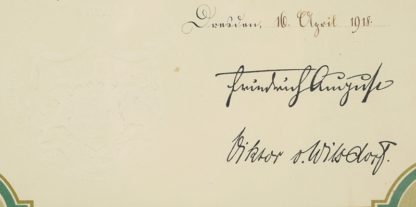 Dresden, 16. April 1918.
Friedrich August
Viktor v. Wilsdorf.